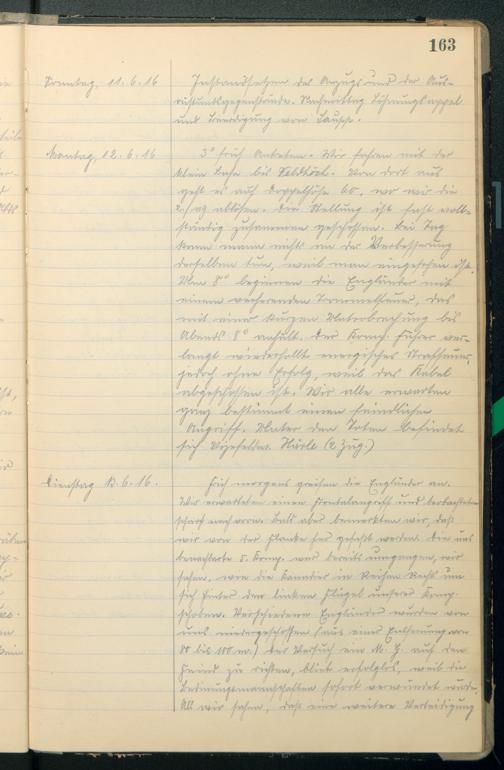 163
Sonntag, 11.6.16 Instandsetzen des Anzugs und der Aus-
rüstungsgegenstände. Nachmittag Löhnungsappel
und Beerdigung von
Montag, 12.6.16 3° früh Antreten. Wir fahren mit der
klein Bahn bis Feldhöck. Von dort aus
geht es auf Doppelhöhe 60, wo wir die
ablösen. Die Stellung ist fast voll-
ständig zusammen geschossen. Bei Tag
kann mann nichts an der Verbesserung
derselben tun, weil man eingesehen ist.
Um 8° beginnen die Engländer mit
einem verheerenden Trommelfeuer, das
mit einer kurzen Unterbrechung bis
Abends 8° anhält. Der Komp. Führer ver-
langt wiederhollt energisches Strafheuer,
jedoch ohne Erfolg, weil das Kabel
abgeschossen ist. Wir alle erwarten
ganz bestimmt einen feindlichen
Angriff. Unter den Toten befindet
sich Vizefeldw. Härle (2 Zug.)
Dienstag 13.6.16. Früh morgens greifen die Engländer an.
Wir erwarteten einen Frontalangriff und beobachteten
scharf nach vorn. Bald aber bemerkten wir, daß
wir von der Flanke her gefaßt werden. Die uns
benachbarte 5. Komp. war bereits umgangen, wir
sahen, wie die Kanadier in Reihen Recht um
sich hinter den linken Flügel unserer Komp.
schoben. Verschiedene Engländer wurden von
uns niedergeschossen (aus einer Entfernung von
80 bis 100 m.) Der Versuch ein M. G. auf den
Feind zu richten, bliebt erfolglos, weil die
Bedinungsmannschaften sofort verwundet wurde.
Als wir sahen, daß eine weitere Verteidigung